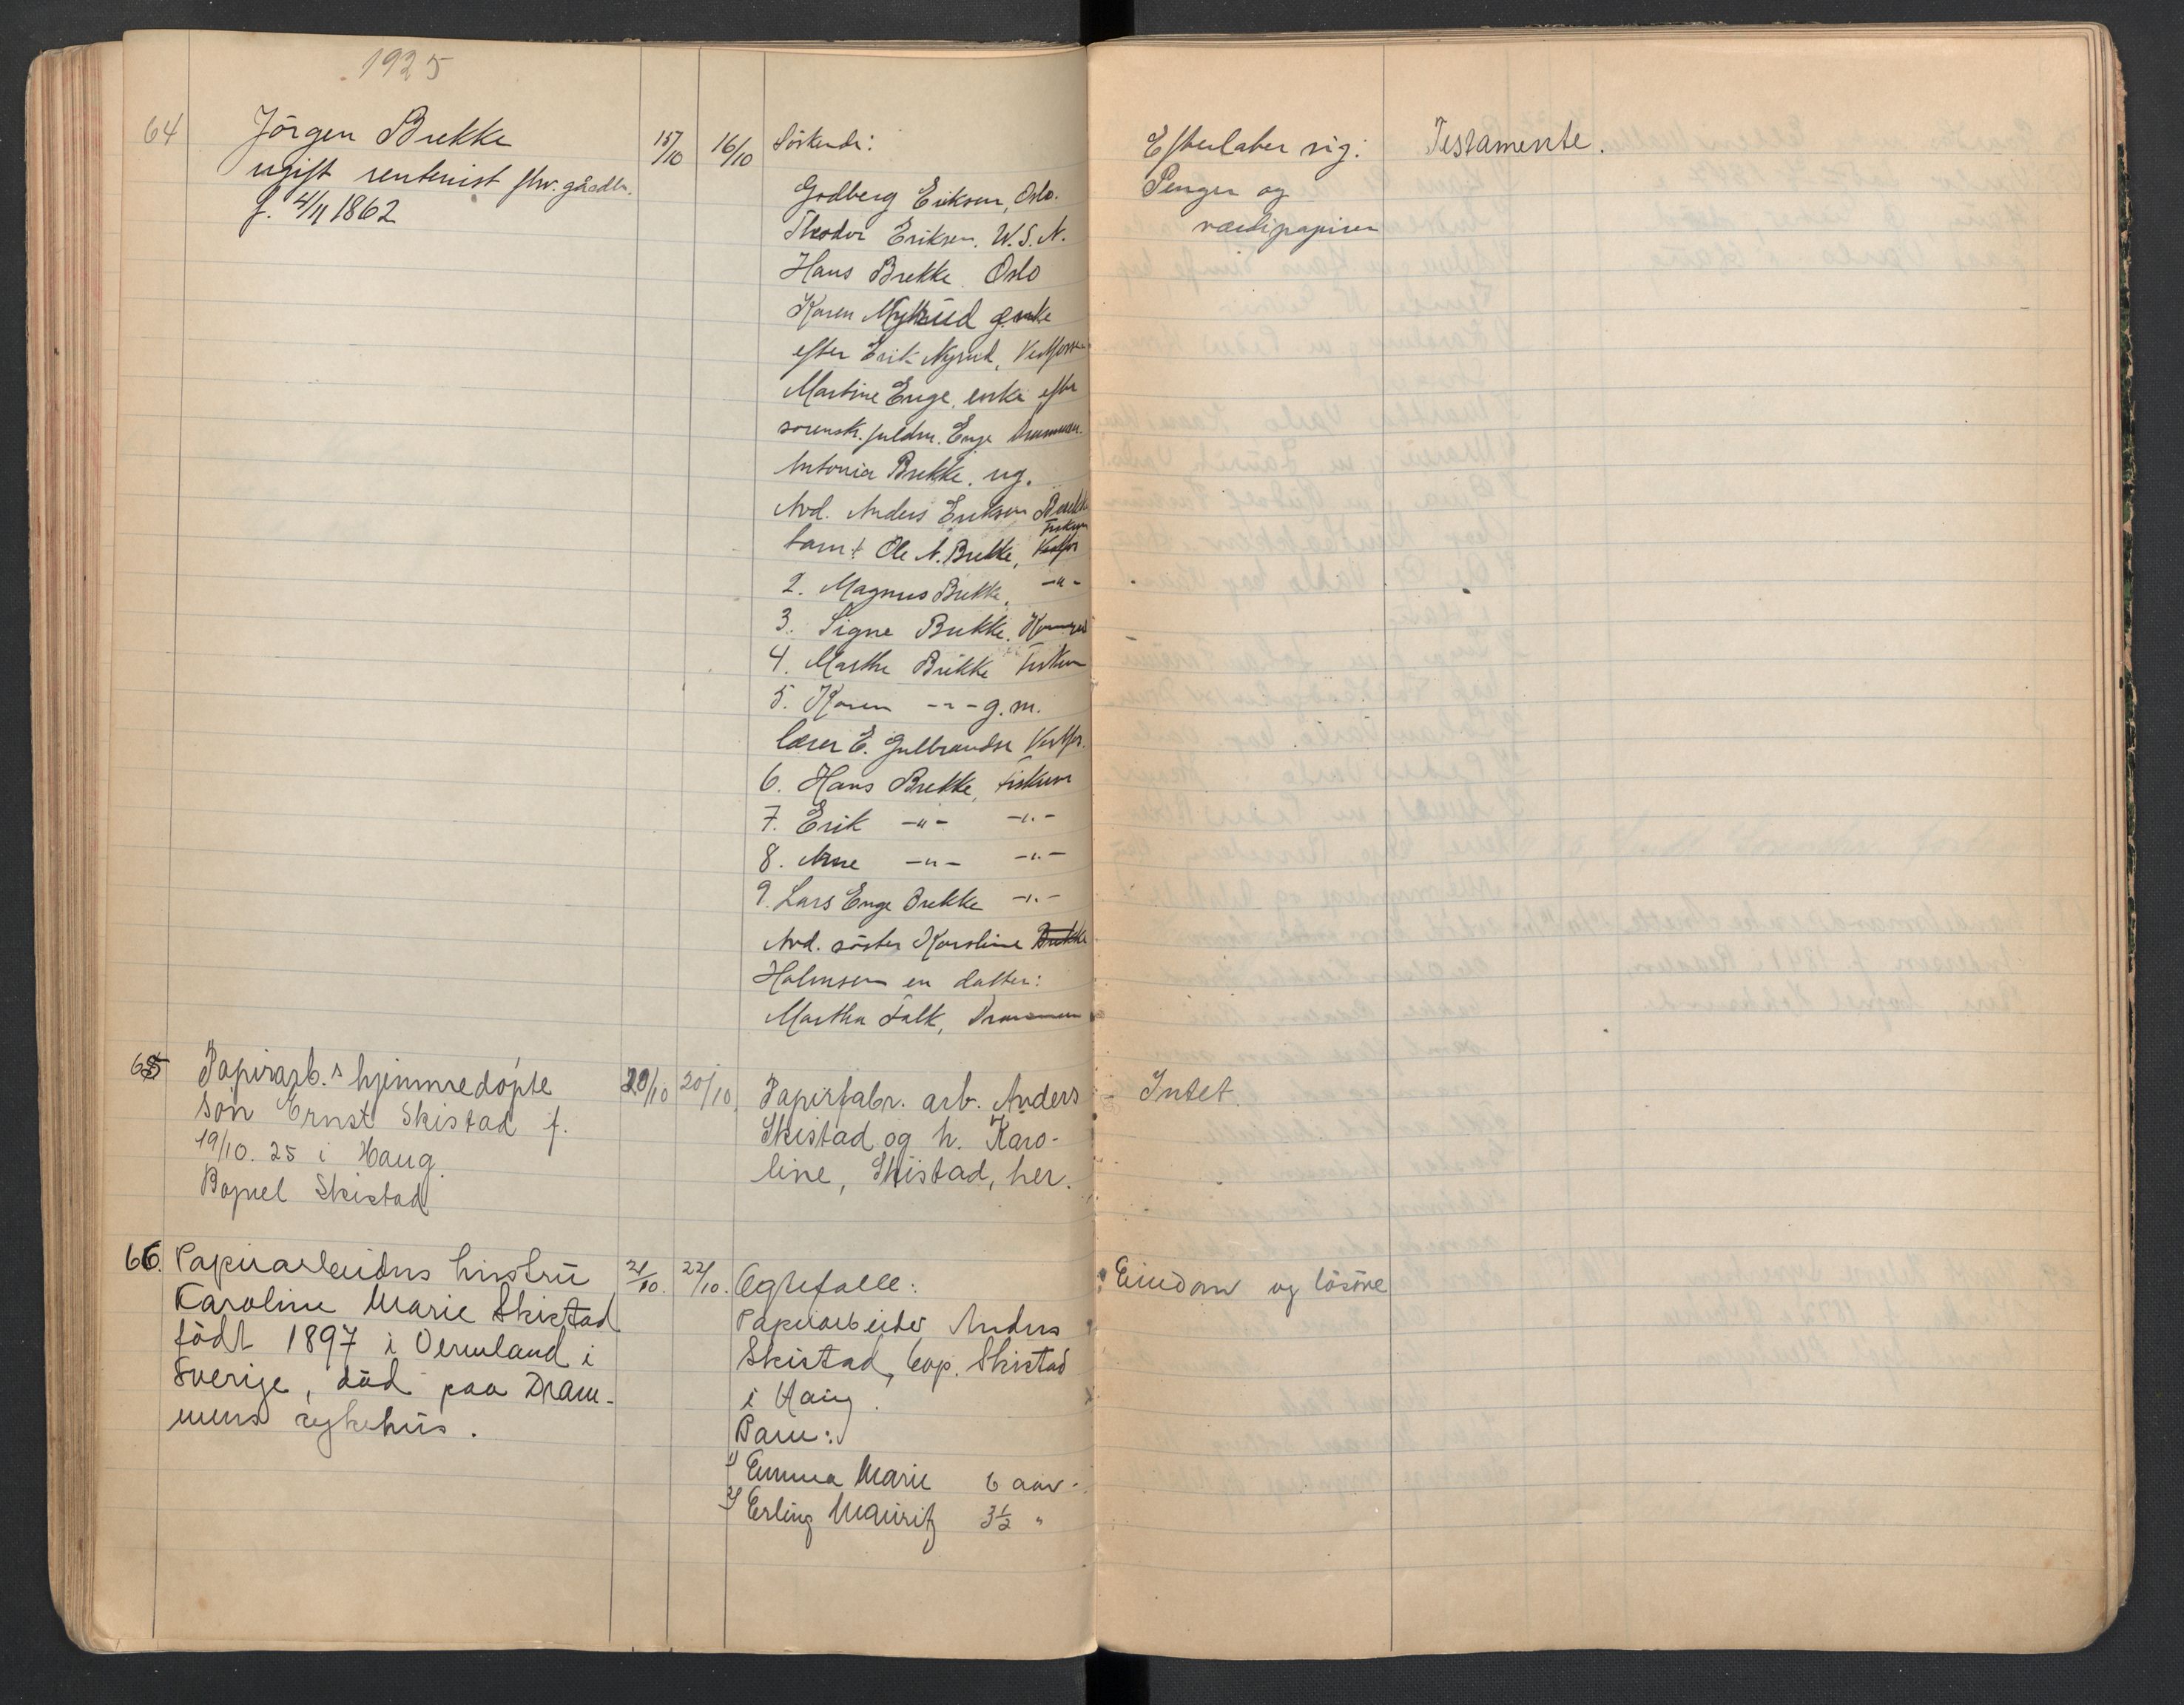 1925
64 Jörgen Brekke 15/10 16/10 Söskende: Efterlater sig: Testamente.
ugift rentenist fhv. gårdbr. Penger og
f. 4/11 1862 værdipapirer
Godberg Eriksen, Oslo.
Theodor Eriksen. W.S.N.
Hans Brekke. Oslo
Karen Nyhrud enke
efter Erik Nyrud, Vestfossen
Martine Enge, enke efter
sorensk. fuldm. Enge Drammen.
Antonia Brekke. ug.
Avd. Anders Eriksen Brekke
Fiskum
barn: Ole A. Brekke, Vestfos
2. Magnus Brekke, -"-
3. Signe Brekke.
4. Marthe Brekke Fiskum
5. Karen -"- g.m.
lærer E. Gulbrandse Vestfos.
6. Hans Brekke, Fiskum
7. Erik -"- -"-
8. Arne -"- -"-
9. Lars Enge Brekke -"-
Avd. söster Karoline Brekke
Holmsen en datter:
Martha Falk, Drammen
65 Papirarb.s hjemmedöpte 20/10 20/10. Papirfabr. arb. Anders Intet.
sön Ernst Skistad f. Skistad og h. Karo-
19/10. 25 i Haug. line, Skistad, her.
Bopel Skistad
66. Papirarbeiders hustru 21/10. 22/10. Egtefælle: Eiendom og lösöre
Karoline Marie Skistad Papirarbeider Anders
födt 1897 i Vermland i Skistad, bop. Skistad
Sverige, död paa Dram- i Haug.
mens sykehus. Barn:
1) Emma Marie 6 aar.
2) Erling Mauritz 3½ "